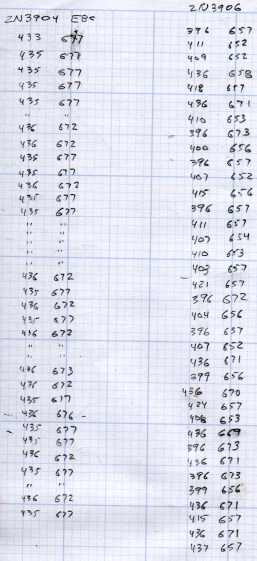 2N3904 EBC
433 677
435 677
435 677
435 677
435 677
" "
436 672
436 672
435 677
435 677
436 672
435 677
435 677
" "
" "
" "
" "
436 672
435 677
436 672
435 677
436 672
" "
" "
436 673
436 672
435 617
436 676
435 677
435 677
436 672
435 677
" "
436 672
435 677
2N3906
396 657
411 652
409 652
436 658
418 657
436 671
410 653
396 673
400 656
396 657
407 652
415 656
396 657
411 657
407 654
410 653
403 657
421 657
396 672
404 656
396 657
407 652
436 671
399 656
436 670
424 657
408 653
436 669
396 673
436 671
396 673
399 656
436 671
415 657
436 671
437 657